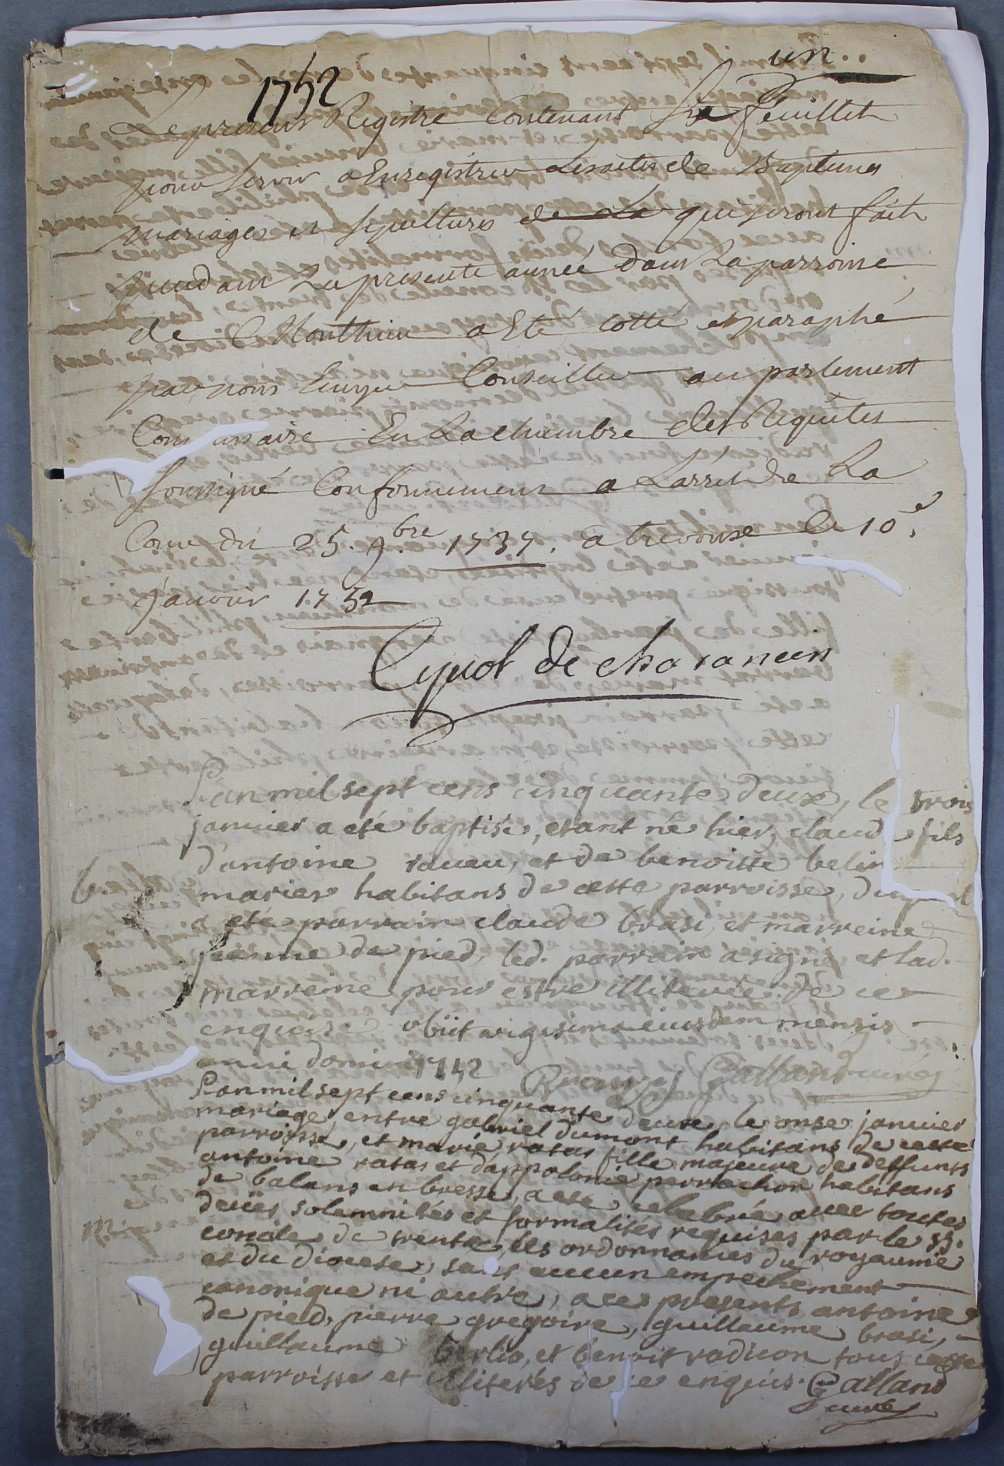 un
1752
Le present Registre Contenant Six feuillets
pour servir a Enregistrer Les actes de Baptemes
mariages et sepultures de La qui seront faits
pendant La presente année dans La parroisse
de Monthieu a Eté cotté et paraphé
par nous Ecuyer Conseiller au parlement
Commissaire En La chambre des Requêtes
soussigné Conformement a Larrest de La
Cour du 25. 9.bre 1737. a trevoux le 10.e
janvier 1752
Cynol de charancin
L'an mil sept cens cinquante deux, le trois
janvier a eté baptisé, etant né hier, claude fils
d'antoine raveu, et de benoitte belin
mariés habitans de cette parroisse, duquel
b.
a eté parrain claude brasi, et marreine
jeanne de pied, led. parrain a signé, et lad.
marreine pour estre illiterée. de ce
enquise. obiit vigesima eiusdem mensis
anni domini 1752
Galland curé
L'an mil sept cens cinquante deux, le onse janvier
mariage, entre gabriel dumont habitans de cette
parroisse, et marie ratas fille majeure de deffunts
antoine ratas et d'appolonie perrachon habitans
de balans en bresse, a eté celebré avec toutes
deües solemnités et formalités requises par le st.
m.
concile de trente, les ordonnances du royaume
et du diocese, sans aucun empechement
canonique ni autre, a ce presents antoine
de pied, pierre gregoire, guillaume brasi,
guillaume berlio, et benoit radicon tous cette
parroisse et illiterés de ce enquis. Galland
curé